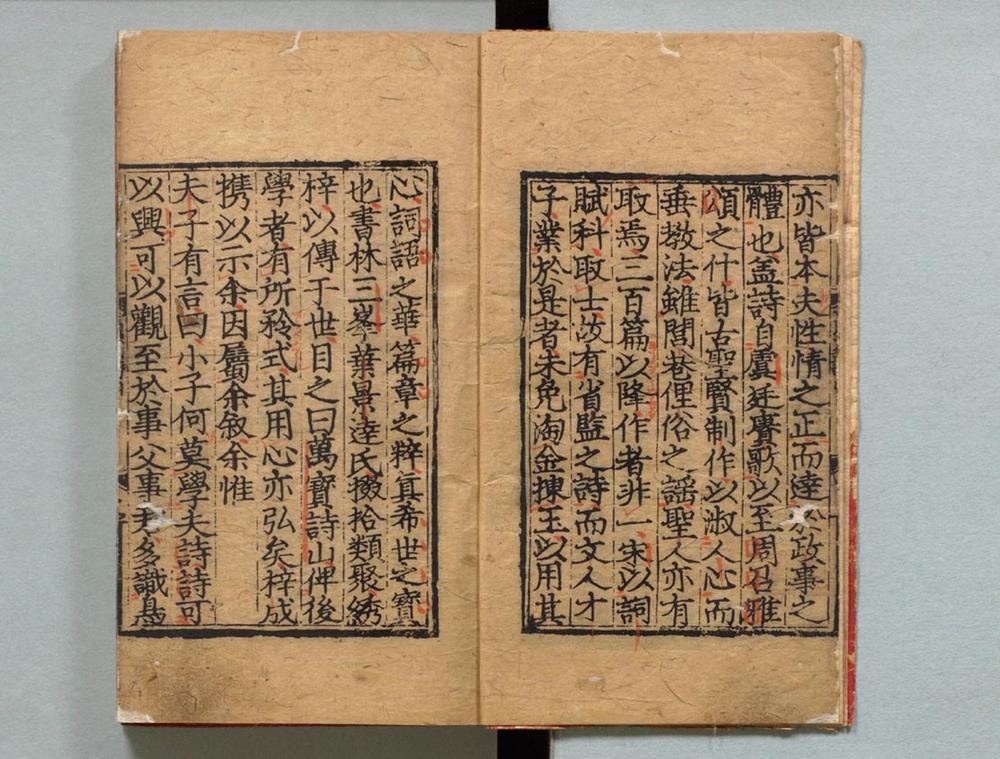 亦皆本夫性情之正而達於政事之
體也盖詩自虞廷賡歌以至周召雅
頌之什皆古聖賢制作以淑人心而
垂教法雖閭巷俚俗之謡聖人亦有
取焉三百篇以降作者非一宋以詞
賦科取士故有省監之詩而文人才
子業於是者未免淘金揀玉以用其
心詞語之華篇章之粹真希世之寶
也書林三峯葉景逵氏掇拾類聚綉
梓以傳于世目之曰萬寶詩山俾後
學者有所矜式其用心亦弘矣梓成
携以示余因屬余叙余惟
夫子有言曰小子何莫學夫詩詩可
以興可以觀至於事父事君多識鳥